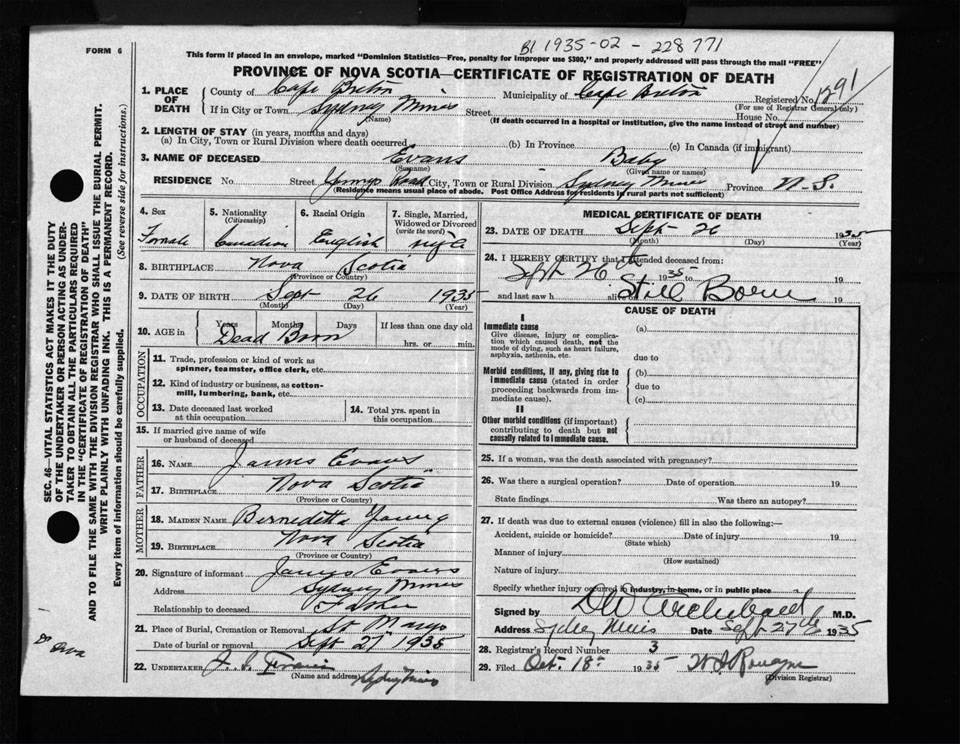 BI 1935-02-228771
FORM 6
This form if placed in an envelope, marked "Dominion Statistics—Free, penalty for improper use $300," and properly addressed will pass through the mail "FREE"
PROVINCE OF NOVA SCOTIA—CERTIFICATE OF REGISTRATION OF DEATH
1. PLACE OF DEATH
County of Cape Breton Municipality of Cape Breton Registered No. 1291
(For use of Registrar General only)
If in City or Town Sydney Mines Street House No.
(Name) (If death occurred in a hospital or institution, give the name instead of street and number)
2. LENGTH OF STAY (in years, months and days)
(a) In City, Town or Rural Division where death occurred (b) In Province (c) In Canada (if immigrant)
3. NAME OF DECEASED Evans Baby
(Surname) (Given name or names)
RESIDENCE No. Street Road City, Town or Rural Division Sydney Mines Province N.S.
(Residence means usual place of abode. Post Office Address for residents in rural parts not sufficient)
4. Sex Female
5. Nationality (Citizenship) Canadian
6. Racial Origin English
7. Single, Married, Widowed or Divorced (write the word)
8. BIRTHPLACE Nova Scotia
(Province or Country)
9. DATE OF BIRTH Sept 26 1935
(Month) (Day) (Year)
10. AGE in Years Months Days If less than one day old
Dead Born hrs. or min.
OCCUPATION
11. Trade, profession or kind of work as spinner, teamster, office clerk, etc.
12. Kind of industry or business, as cotton-mill, lumbering, bank, etc.
13. Date deceased last worked at this occupation
14. Total yrs. spent in this occupation
15. If married give name of wife or husband of deceased
FATHER
16. NAME James Evans
17. BIRTHPLACE Nova Scotia
(Province or Country)
MOTHER
18. MAIDEN NAME Bernedetta Young
19. BIRTHPLACE Nova Scotia
(Province or Country)
20. Signature of informant James Evans
Address Sydney Mines
Relationship to deceased Father
21. Place of Burial, Cremation or Removal St Marys
Date of burial or removal Sept 27 1935
22. UNDERTAKER
(Name and address) Sydney Mines
MEDICAL CERTIFICATE OF DEATH
23. DATE OF DEATH Sept 26 1935
(Month) (Day) (Year)
24. I HEREBY CERTIFY that I attended deceased from:
Sept 26th 1935 to 19
and last saw h alive on Still Born 19
CAUSE OF DEATH
I
Immediate cause
Give disease, injury or complication which caused death, not the mode of dying, such as heart failure, asphyxia, asthenia, etc.
(a)
due to
Morbid conditions, if any, giving rise to immediate cause (stated in order proceeding backwards from immediate cause).
(b)
due to
(c)
II
Other morbid conditions (if important) contributing to death but not causally related to immediate cause.
25. If a woman, was the death associated with pregnancy?
26. Was there a surgical operation? Date of operation 19
State findings Was there an autopsy?
27. If death was due to external causes (violence) fill in also the following:—
Accident, suicide or homicide? Date of injury 19
(State which)
Manner of injury
(How sustained)
Nature of injury
Specify whether injury occurred in industry, in home, or in public place
Signed by DW Archibald M.D.
Address Sydney Mines Date Sept 27th 1935
28. Registrar's Record Number 3
29. Filed Oct. 18th 1935
(Division Registrar)
SEC. 46—VITAL STATISTICS ACT MAKES IT THE DUTY
OF THE UNDERTAKER OR PERSON ACTING AS UNDER-
TAKER TO OBTAIN ALL THE PARTICULARS REQUIRED
IN THE "CERTIFICATE OF REGISTRATION OF DEATH"
AND TO FILE THE SAME WITH THE DIVISION REGISTRAR WHO SHALL ISSUE THE BURIAL PERMIT.
WRITE PLAINLY WITH UNFADING INK. THIS IS A PERMANENT RECORD.
Every item of information should be carefully supplied. (See reverse side for instructions.)